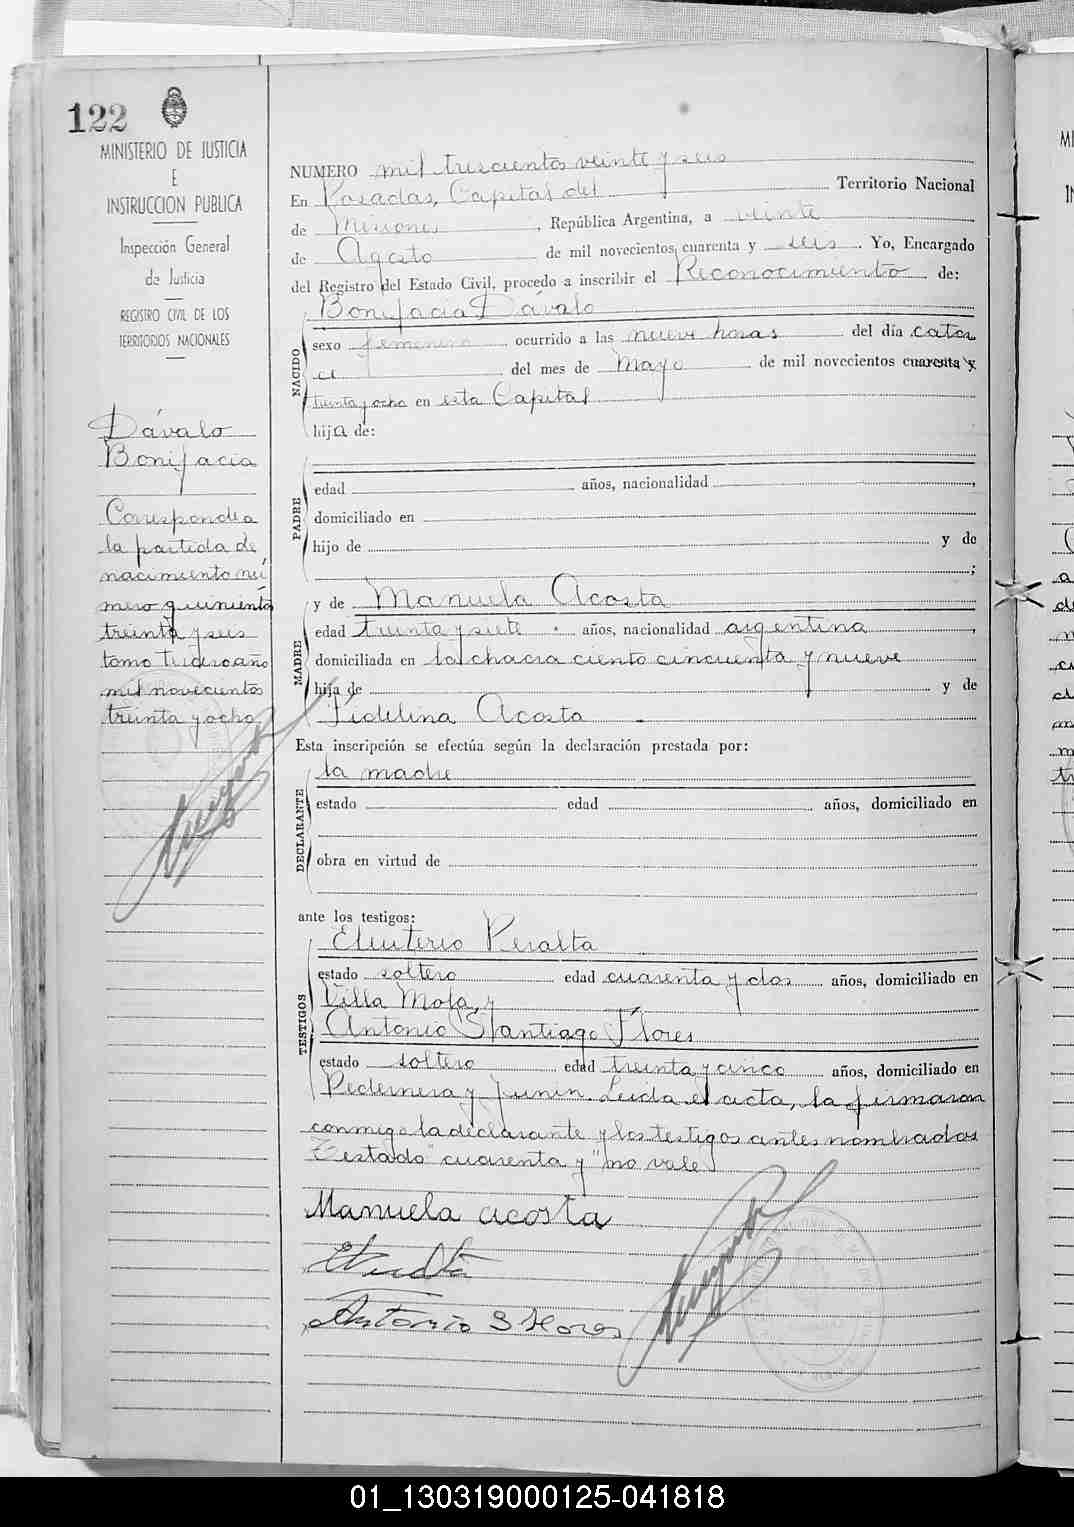 122
MINISTERIO DE JUSTICIA
E
INSTRUCCION PUBLICA
Inspección General
de Justicia
REGISTRO CIVIL DE LOS
TERRITORIOS NACIONALES
Dávalo
Bonifacia
Corresponde a
la partida de
nacimiento nú
mero quinientos
treinta y seis
tomo tercero año
mil novecientos
treinta y ocho
NUMERO mil trescientos veinte y seis
En Posadas, Capital del Territorio Nacional
de Misiones, República Argentina, a veinte
de Agosto de mil novecientos cuarenta y seis. Yo, Encargado
del Registro del Estado Civil, procedo a inscribir el Reconocimiento de:
Bonifacia Dávalo
NACIDO
sexo femenino ocurrido a las nueve horas del día cator
ce del mes de Mayo de mil novecientos cuarenta y
treinta y ocho en esta Capital
hija de:
PADRE
edad años, nacionalidad
domiciliado en
hijo de y de
;
MADRE
y de Manuela Acosta
edad treinta y siete años, nacionalidad argentina,
domiciliada en la chacra ciento cincuenta y nueve
hija de y de
Fidelina Acosta
Esta inscripción se efectúa según la declaración prestada por:
DECLARANTE
la madre
estado edad años, domiciliado en
obra en virtud de
ante los testigos:
TESTIGOS
Eleuterio Peralta
estado soltero edad cuarenta y dos años, domiciliado en
Villa Mola, y
Antonio Santiago Flores
estado soltero edad treinta y cinco años, domiciliado en
Pedernera y Junin. Leida el acta, la firmaron
conmigo la declarante y los testigos antes nombrados
Testado cuarenta y "no vale"
Manuela acosta
Antonio S Flores
01_130319000125-041818